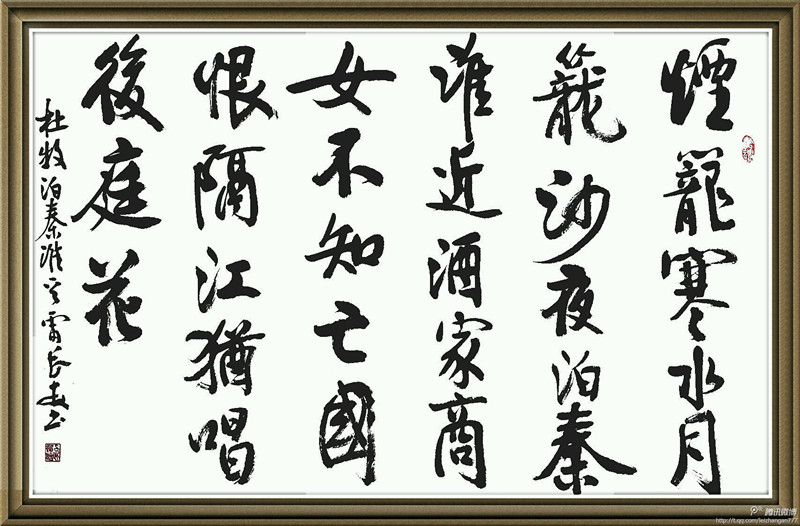 煙籠寒水月
籠沙夜泊秦
淮近酒家商
女不知亡國
恨隔江猶唱
後庭花
杜牧泊秦淮 雷長安書
腾讯微博
http://t.qq.com/leizhangan